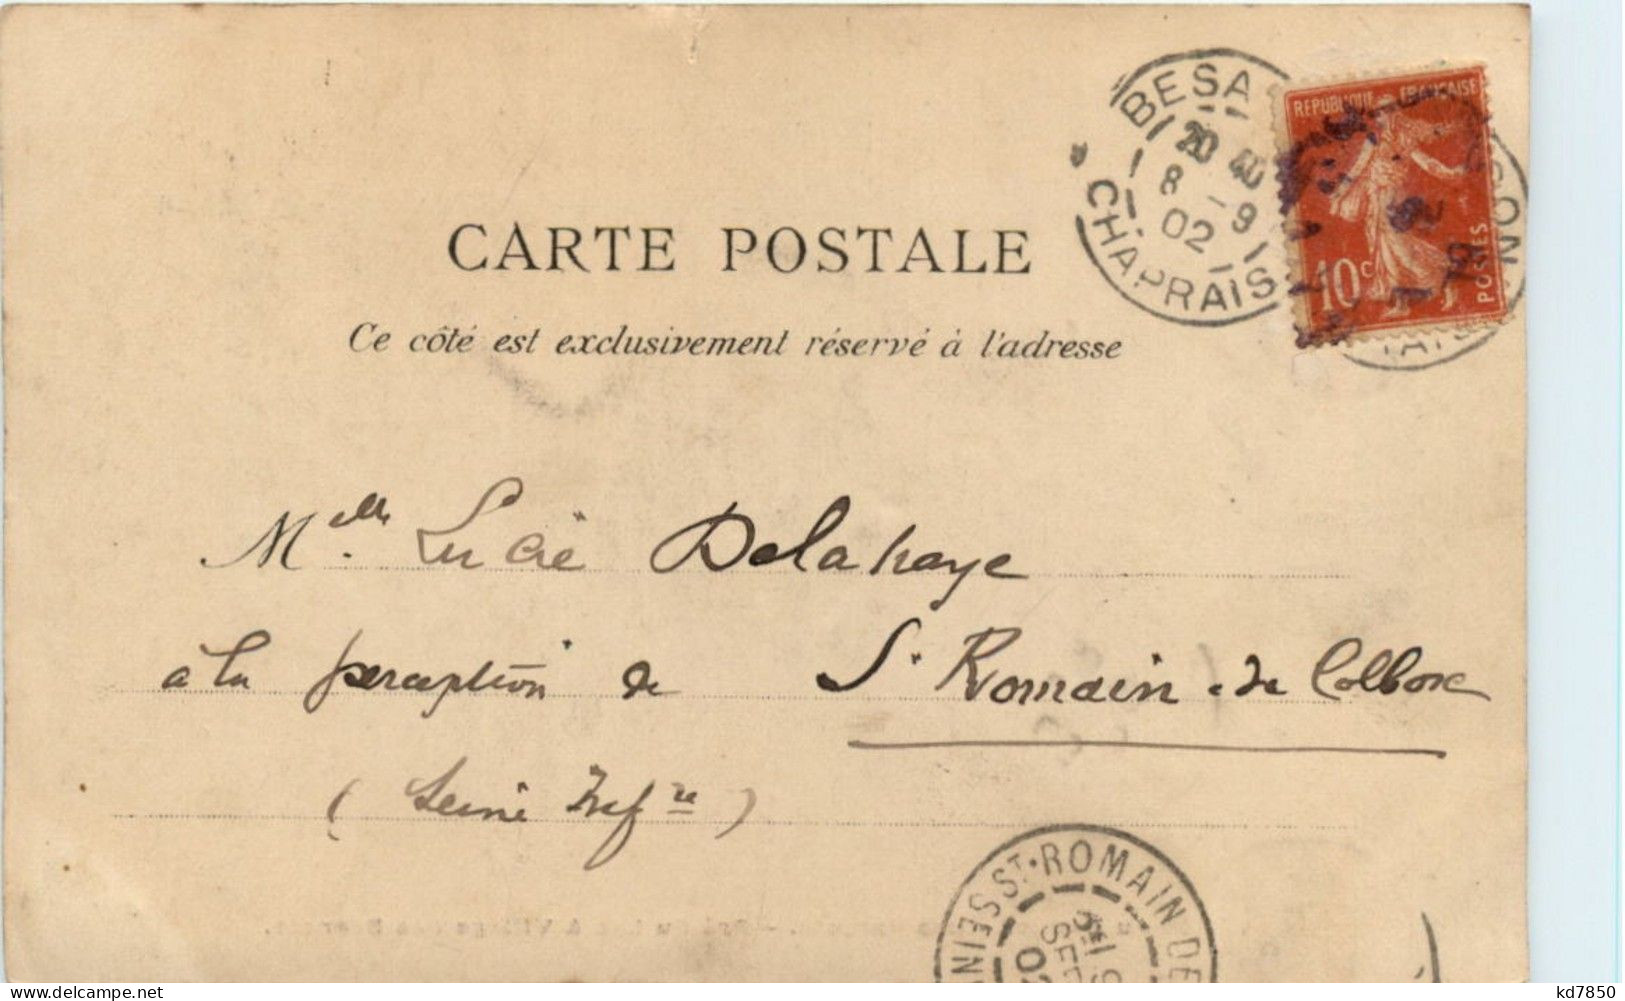 BESANÇON
20 40
8 - 9
02
CHAPRAIS
REPUBLIQUE FRANÇAISE
10c
POSTES
CARTE POSTALE
Ce côté est exclusivement réservé à l'adresse
Melle Lucie Delahaye
à la perception de St Romain-de Colbosc
(Seine Infre)
ST-ROMAIN DE
SEINE
SEPT
02
kd7850